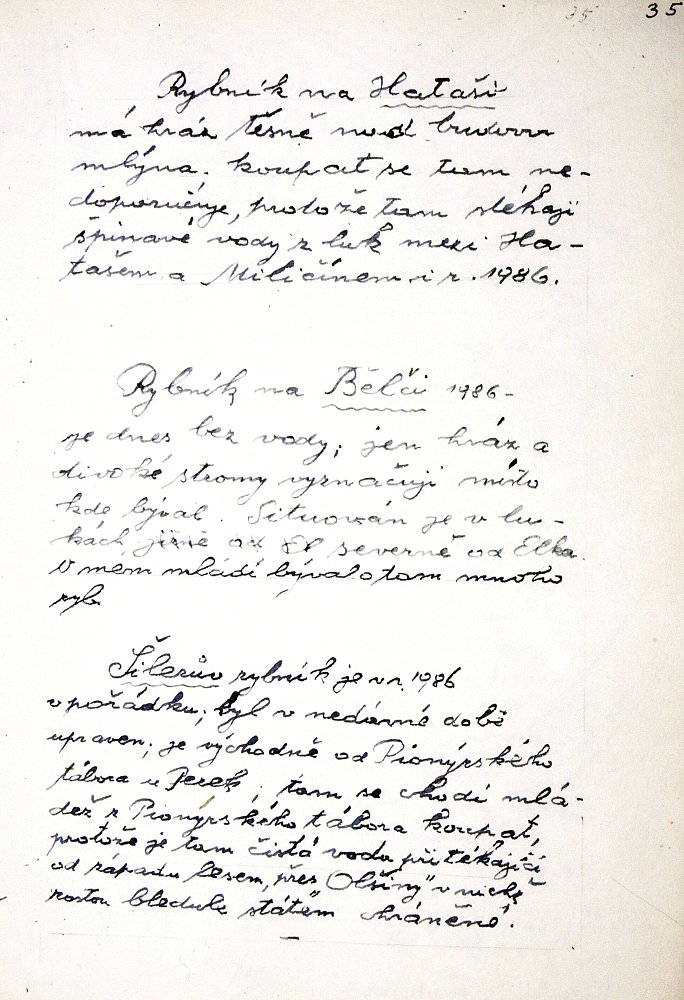 35 35
Rybník na Hataši
má hráz těsně nad budovou
mlýna. Koupat se tam ne-
doporučuje, protože tam stékají
špinavé vody z luk mezi Ha-
tašem a Miličínem i r. 1986.
Rybník na Bělči 1986 -
je dnes bez vody; jen hráz a
divoké stromy vyznačují místo
kde býval. Situován je v lu-
kách, jižně od severně od Elka.
V mém mládí bývalo tam mnoho
ryb
Šilerův rybník je v r. 1986
v pořádku; byl v nedávné době
upraven; je východně od Pionýrského
tábora u Perek; tam se chodí mlá-
dež z Pionýrského tábora koupat,
protože je tam čistá voda přitékající
od západu lesem, přes "Olšiny" v nichž
rostou bledule státem chráněné.